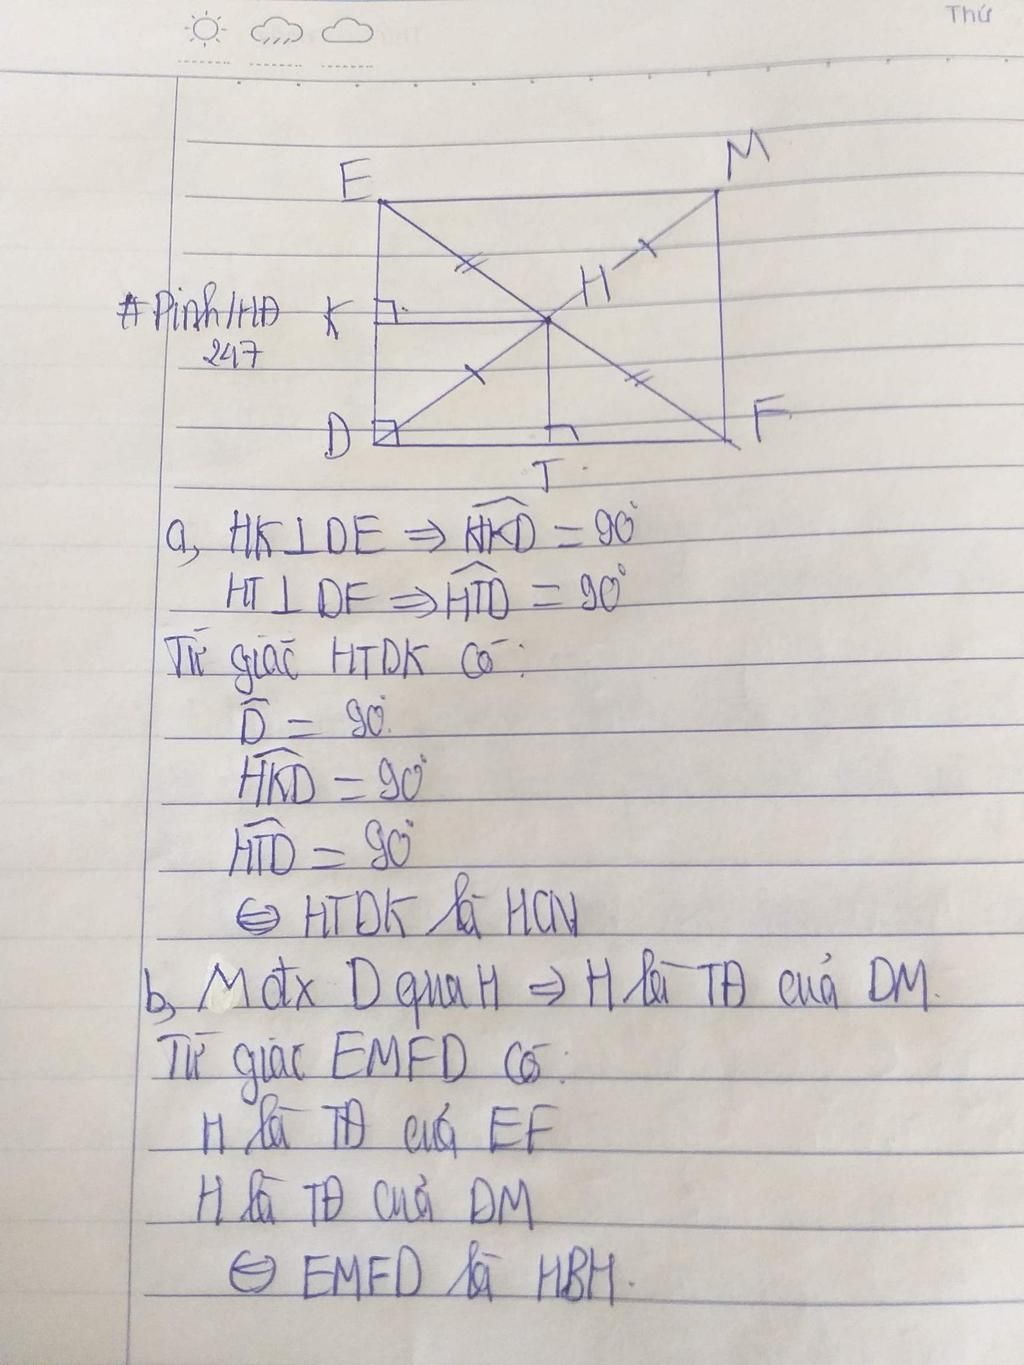 Thứ
E
M
H
#Pinh/HĐ
K
247
D
F
T
a, HK⊥DE ⇒ \widehat{HKD} = 90°
HT⊥DF ⇒ \widehat{HTD} = 90°
Tứ giác HTDK có:
\widehat{D} = 90°
\widehat{HKD} = 90°
\widehat{HTD} = 90°
⇔ HTDK là HCN
b, M đx D qua H ⇒ H là TĐ của DM.
Tứ giác EMFD có:
H là TĐ của EF
H là TĐ của DM
⇔ EMFD là HBH.